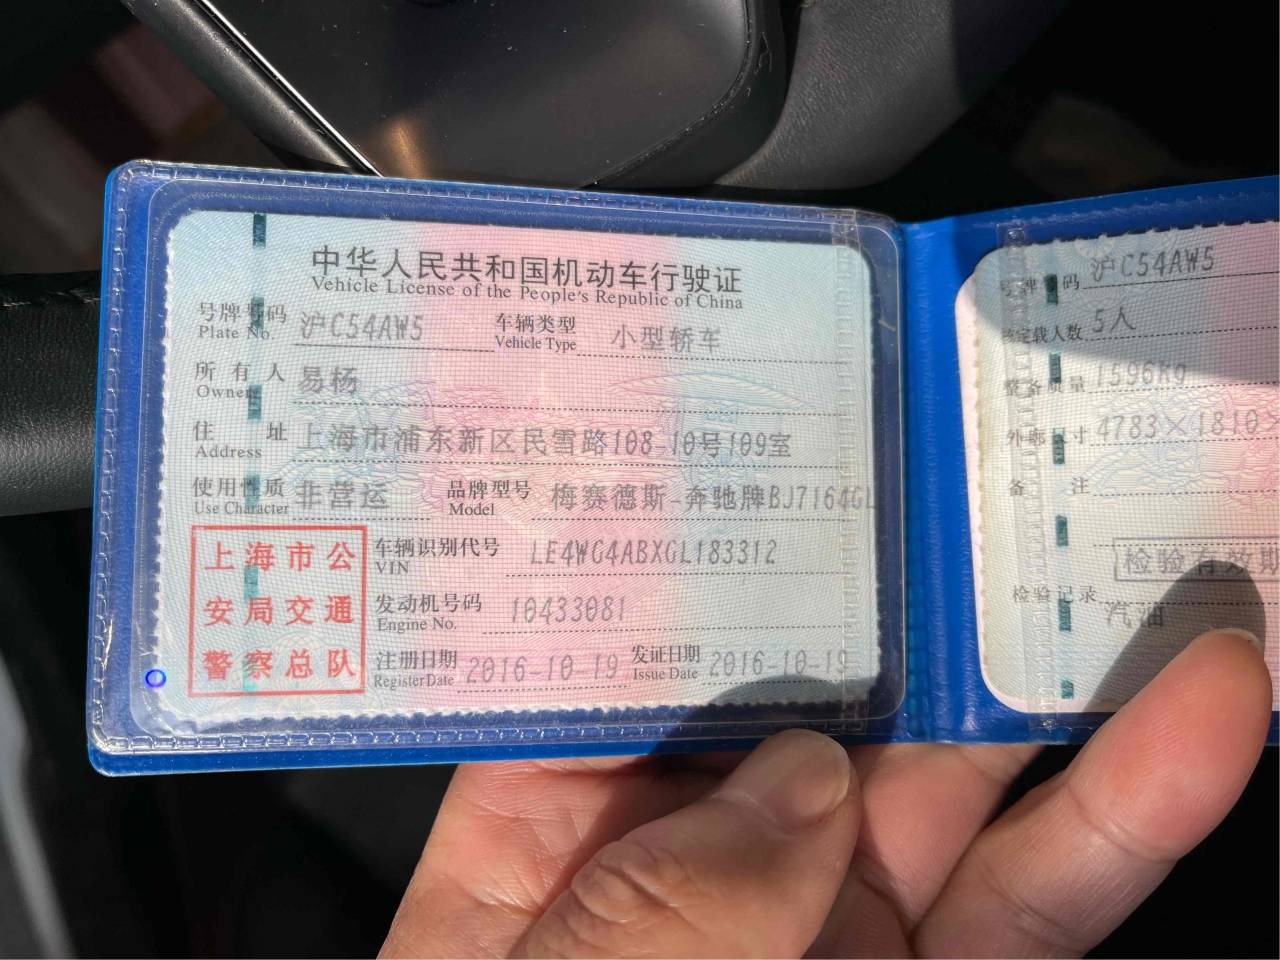 中华人民共和国机动车行驶证
Vehicle License of the People's Republic of China
号牌号码 沪C54AW5 车辆类型 小型轿车
Plate No. Vehicle Type
所有人 易杨
Owner
住址 上海市浦东新区民雪路108-10号109室
Address
使用性质 非营运 品牌型号 梅赛德斯-奔驰牌BJ7164GL
Use Character Model
车辆识别代号 LE4WG4ABXGL183312
VIN
发动机号码 10433081
Engine No.
注册日期 2016-10-19 发证日期 2016-10-19
Register Date Issue Date
上海市公
安局交通
警察总队
号牌号码 沪C54AW5
核定载人数 5人
整备质量 1596kg
外廓尺寸 4783×1810×
备注
检验有效期
检验记录
汽油